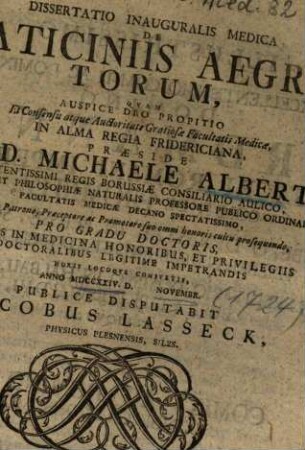 Med. 82
DISSERTATIO INAUGURALIS MEDICA
DE
ATICINIIS AEGR
TORUM,
QUAM
AUSPICE DEO PROPITIO
Et Consensu atque Auctoritate Gratiosæ Facultatis Medicæ,
IN ALMA REGIA FRIDERICIANA,
PRÆSIDE
D. MICHAELE ALBERT
TENTISSIMI REGIS BORUSSIÆ CONSILIARIO AULICO,
ET PHILOSOPHIÆ NATURALIS PROFESSORE PUBLICO ORDINA
FACULTATIS MEDICÆ DECANO SPECTATISSIMO,
Patrono, Præceptore ac Promotore suo omni honoris cultu prosequendo,
PRO GRADU DOCTORIS,
IS IN MEDICINA HONORIBUS, ET PRIVILEGIIS
DOCTORALIBUS LEGITIME IMPETRANDIS
HORIS LOCOQUE CONSUETIS,
ANNO MDCCXXIV. D. NOVEMBR.
(1724)
PUBLICE DISPUTABIT
COBUS LASSECK,
PHYSICUS PLESNENSIS, SILES.